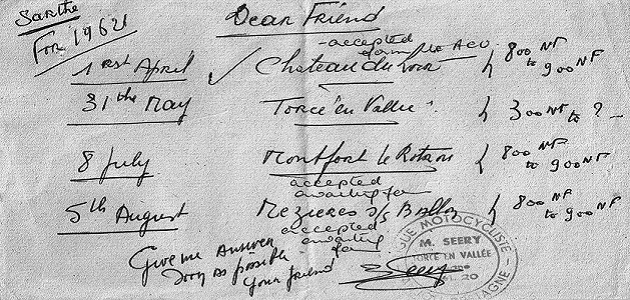 Sarthe
For 1962
Dear Friend
- accepted
form the ACU
1rst April ✓ Chateau du Loir 800 NF to 900 NF
31 the May Torcé "en Vallée" 300 NF to ? -
8 July Montfort le Rotrou 800 NF to 900 NF
accepted
awaiting form
5th August Mezieres s/s Ballon 800 NF to 900 NF
accepted
awaiting
form
Give me answer
soon as possible
your friend
Seery
MOTOCYCLISTE
M. SEERY
TORCE EN VALLÉE